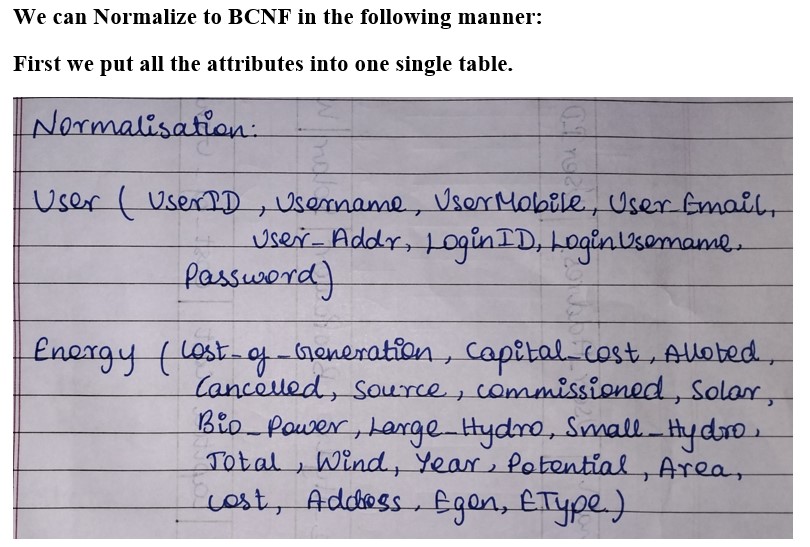 We can Normalize to BCNF in the following manner:
First we put all the attributes into one single table.
Normalisation:
User ( UserID, Username, UserMobile, User Email,
User-Addr, LoginID, LoginUsername,
Password)
Energy ( Cost-of-Generation, Capital-cost, Alloted,
Cancelled, Source, commissioned, Solar,
Bio_Power, Large-Hydro, Small-Hydro,
Total, Wind, Year, Potential, Area,
Cost, Address, Egen, EType)